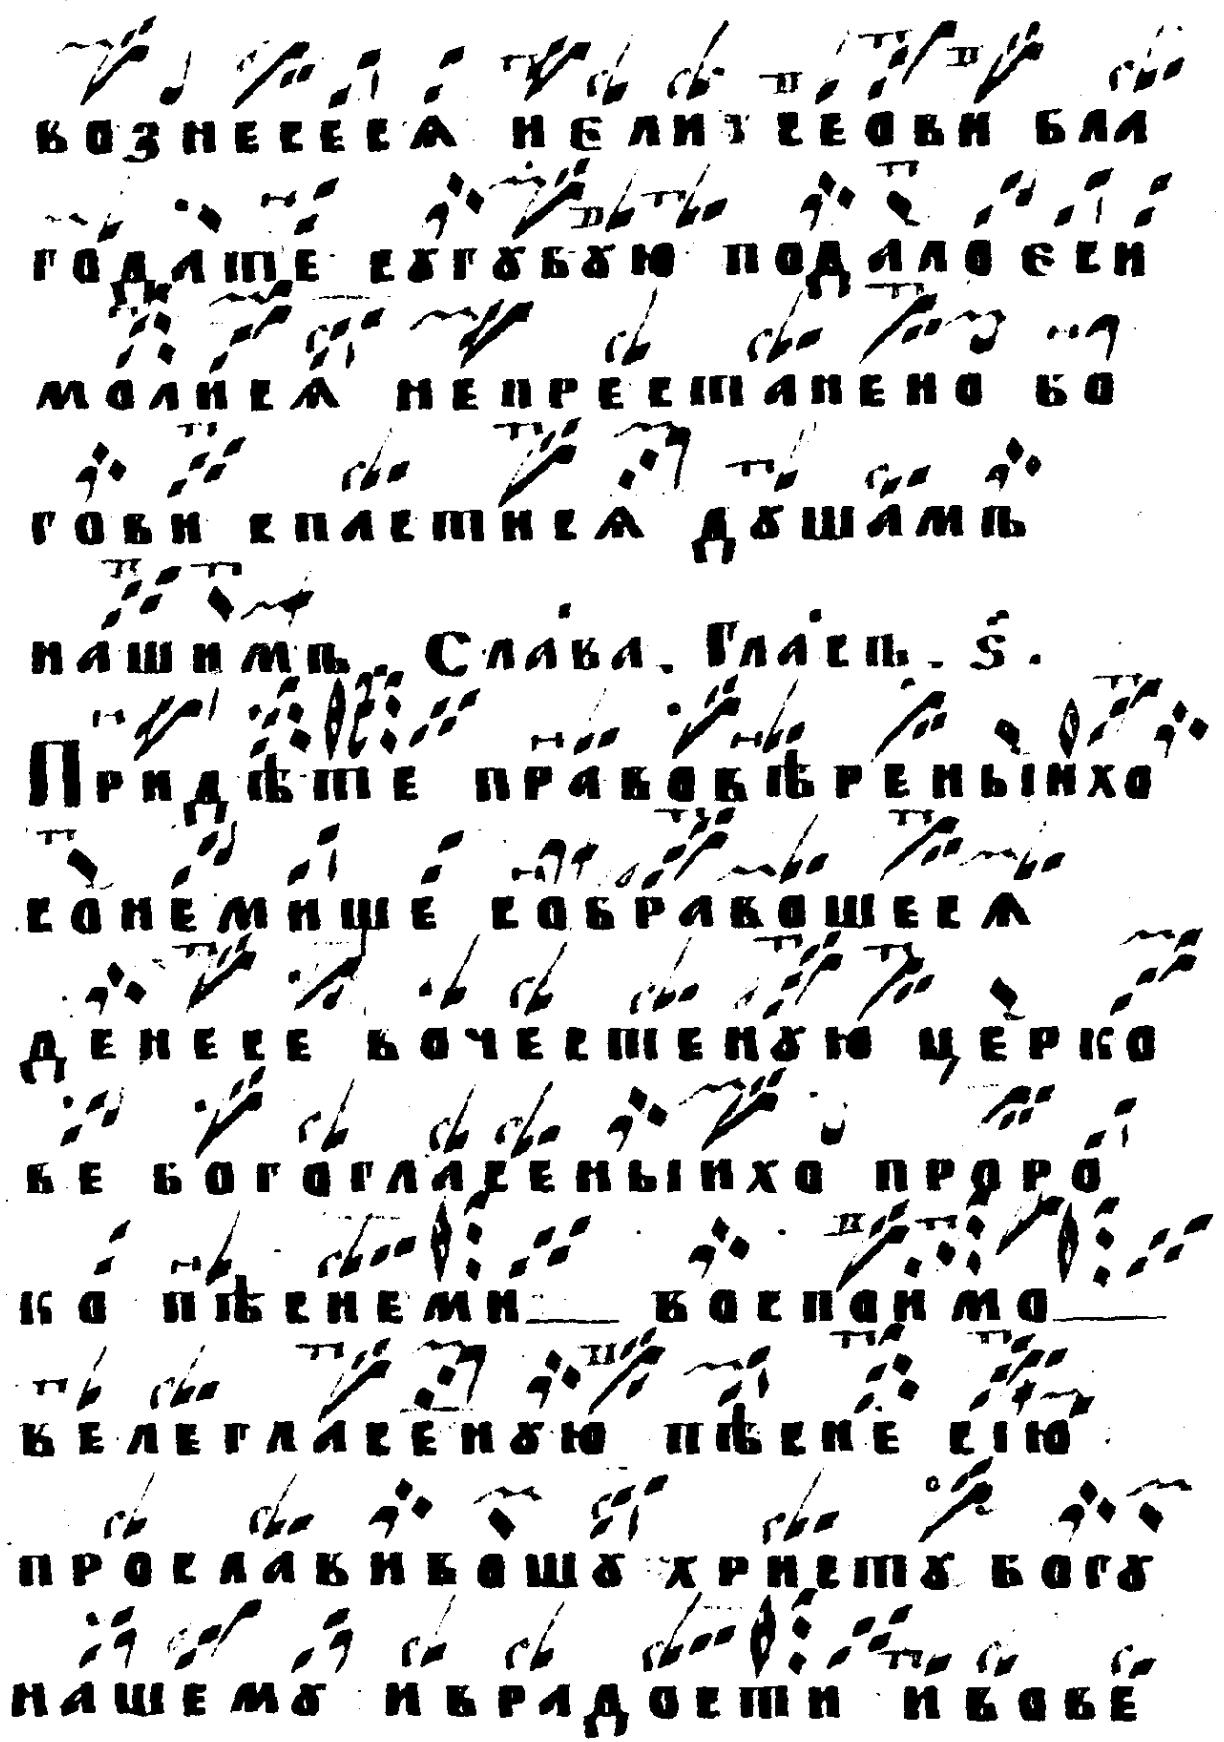 вознесесѧ и елизсеови бла
годате сꙋгꙋбꙋю подалоеси
молисѧ непрестанено бо
гови спастисѧ дꙋшамъ
нашимъ. Слава. Гласъ. ѕ҃.
Придѣте правовѣреныихо
сонемище собравошесѧ
денесе вочестенꙋю церко
ве богогласеныихо проро
ко пѣснеми воспоимо
велегласенꙋю пѣсне сїю
прославивошꙋ христꙋ богꙋ
нашемꙋ и врадости и вове